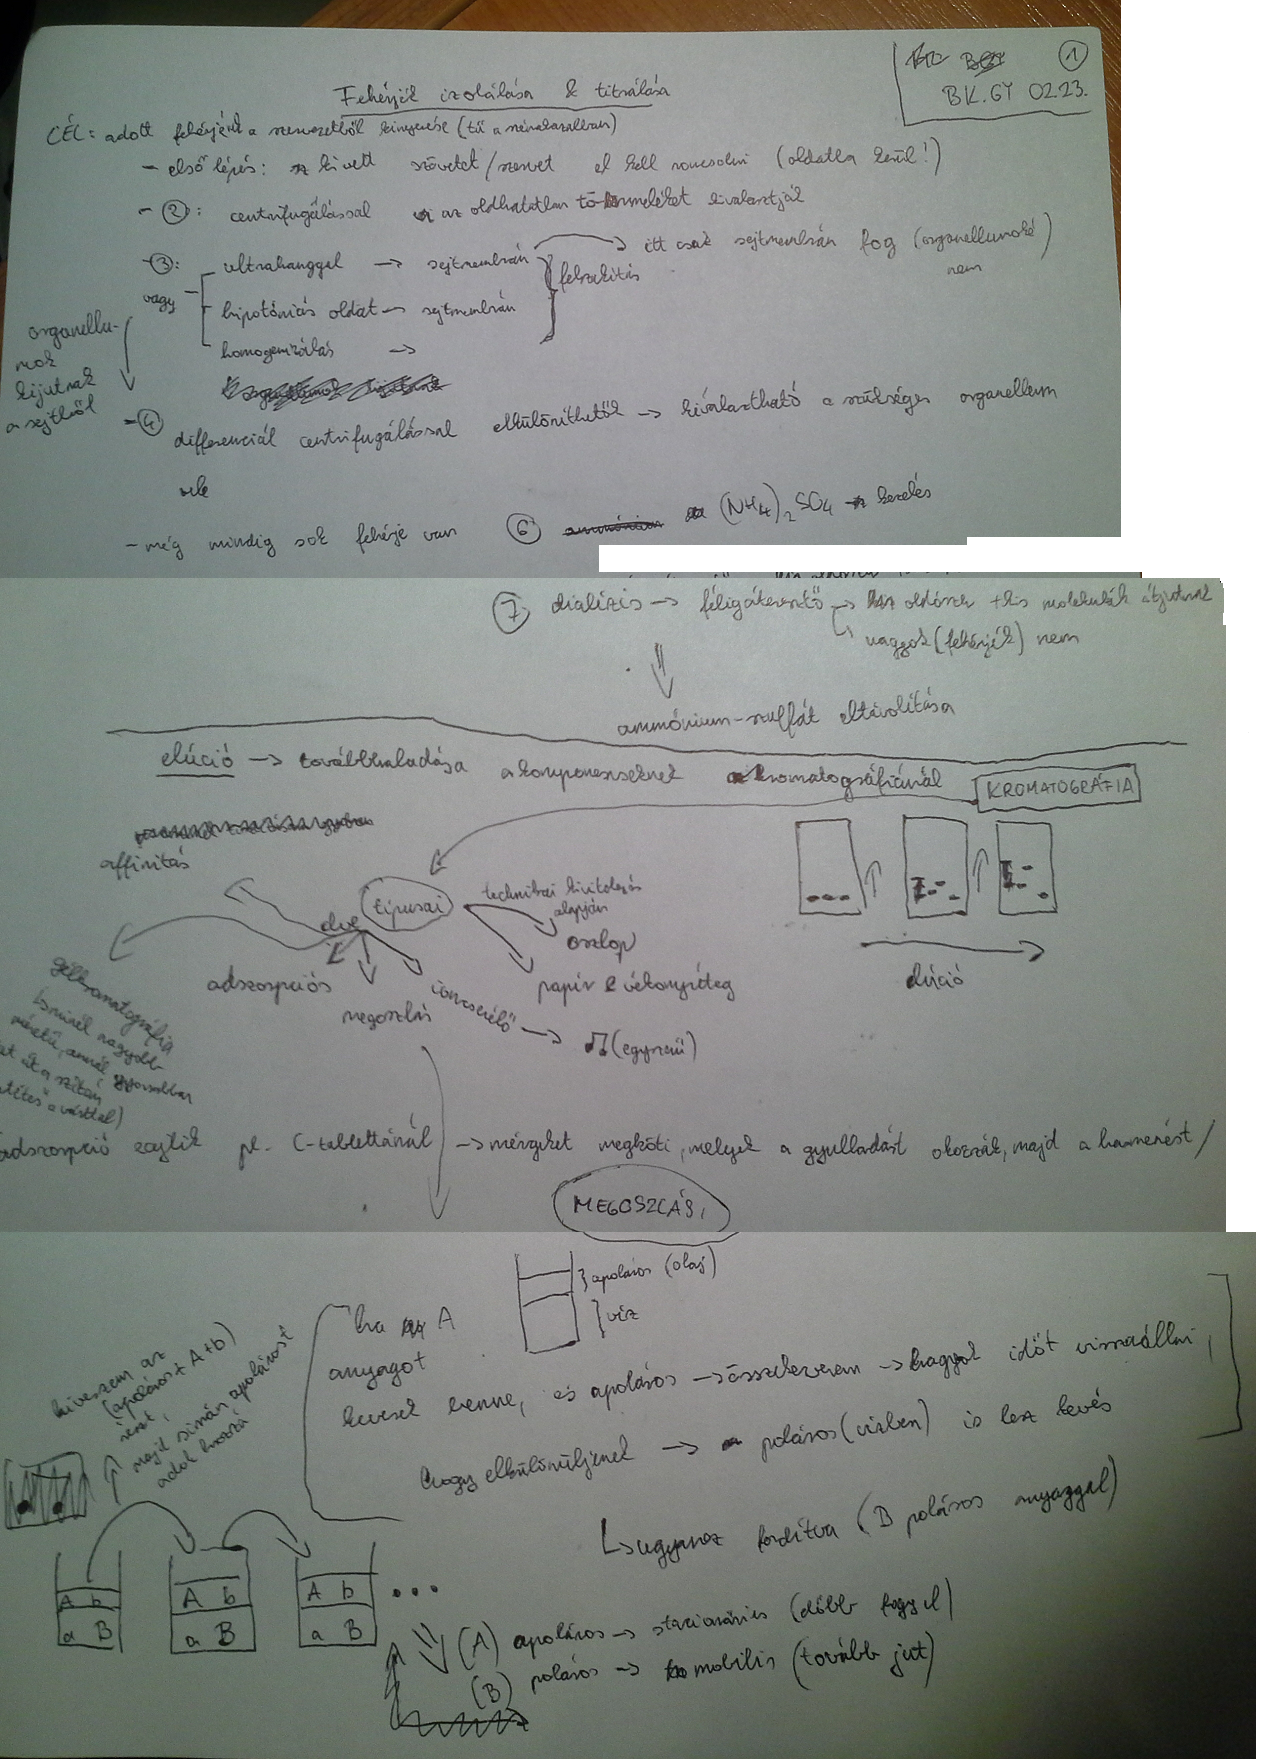 BK.GY 02.23.
1
Fehérjék izolálása & titrálása
CÉL: adott fehérjének a szervezetből kinyerése (tű a szénakazalban)
- első lépés: kivett szövetet/szervet el kell roncsolni (oldatba kerül!)
- 2: centrifugálással az oldhatatlan törmeléket kiválasztják
- 3: ultrahanggal → sejtmembrán → itt csak sejtmembrán fog (organellumoké) nem
vagy
hipotóniás oldat → sejtmembrán
felszakítás
homogenizálás →
organellumok kijutnak a sejtből
- 4 differenciál centrifugálással elkülöníthetők → kiválasztható a szükséges organellum
- még mindig sok fehérje van 6 (NH4)2SO4 kezelés
7 dialízis → féligáteresztő → oldószer + kis molekulák átjutnak
nagyok (fehérjék) nem
ammónium-szulfát eltávolítása
elúció → továbbhaladása a komponenseknek a kromatográfiánál
KROMATOGRÁFIA
affinitás
típusai
technikai kivitelezés alapján
elve
oszlop
papír & vékonyréteg
adszorpciós
megoszlás
ioncserélő → (egyszerű)
elúció
gélkromatográfia
minél nagyobb
méretű, annál gyorsabban
át a szitán
adszorpció zajlik pl. C-tablettánál → mérgeket megköti, melyek a gyulladást okozzák, majd a hasmenést /
MEGOSZLÁS,
apoláros (olaj)
víz
ha A
anyagot
keverek benne, és apoláros → összekeverem → hagyok időt visszaállni,
hogy elkülönüljenek → poláros (vízben) is lesz kevés
↳ ugyanez fordítva (B poláros anyaggal)
kiveszem az
(apoláros + A + b)
részt,
majd simán apolárost
adok hozzá
A b
a B
A b
a B
A b
a B
...
(A) apoláros → stacionárius (előbb fogy el)
(B) poláros → mobilis (tovább jut)